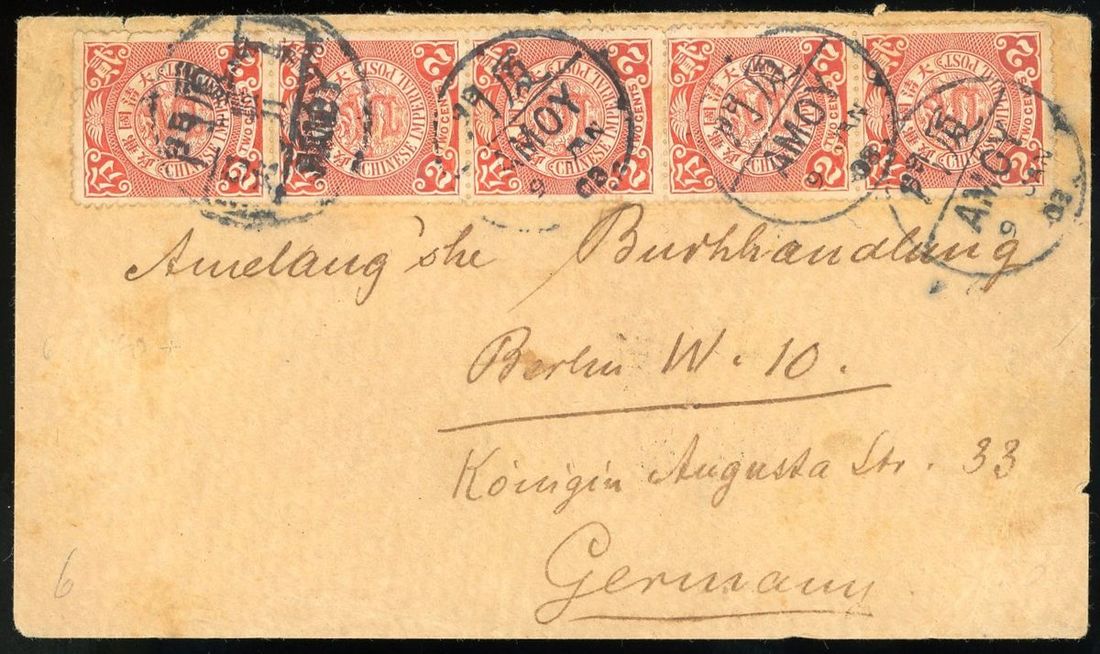 大清國郵政 CHINESE IMPERIAL POST 2 TWO CENTS 貳
大清國郵政 CHINESE IMPERIAL POST 2 TWO CENTS 貳
大清國郵政 CHINESE IMPERIAL POST 2 TWO CENTS 貳
大清國郵政 CHINESE IMPERIAL POST 2 TWO CENTS 貳
大清國郵政 CHINESE IMPERIAL POST 2 TWO CENTS 貳
AMOY 9 JAN 03
AMOY 9 JAN 03
AMOY 9 JAN 03
Amelang'she Buchhandlung
Berlin W. 10.
Königin Augusta Str. 33
Germany
6
6